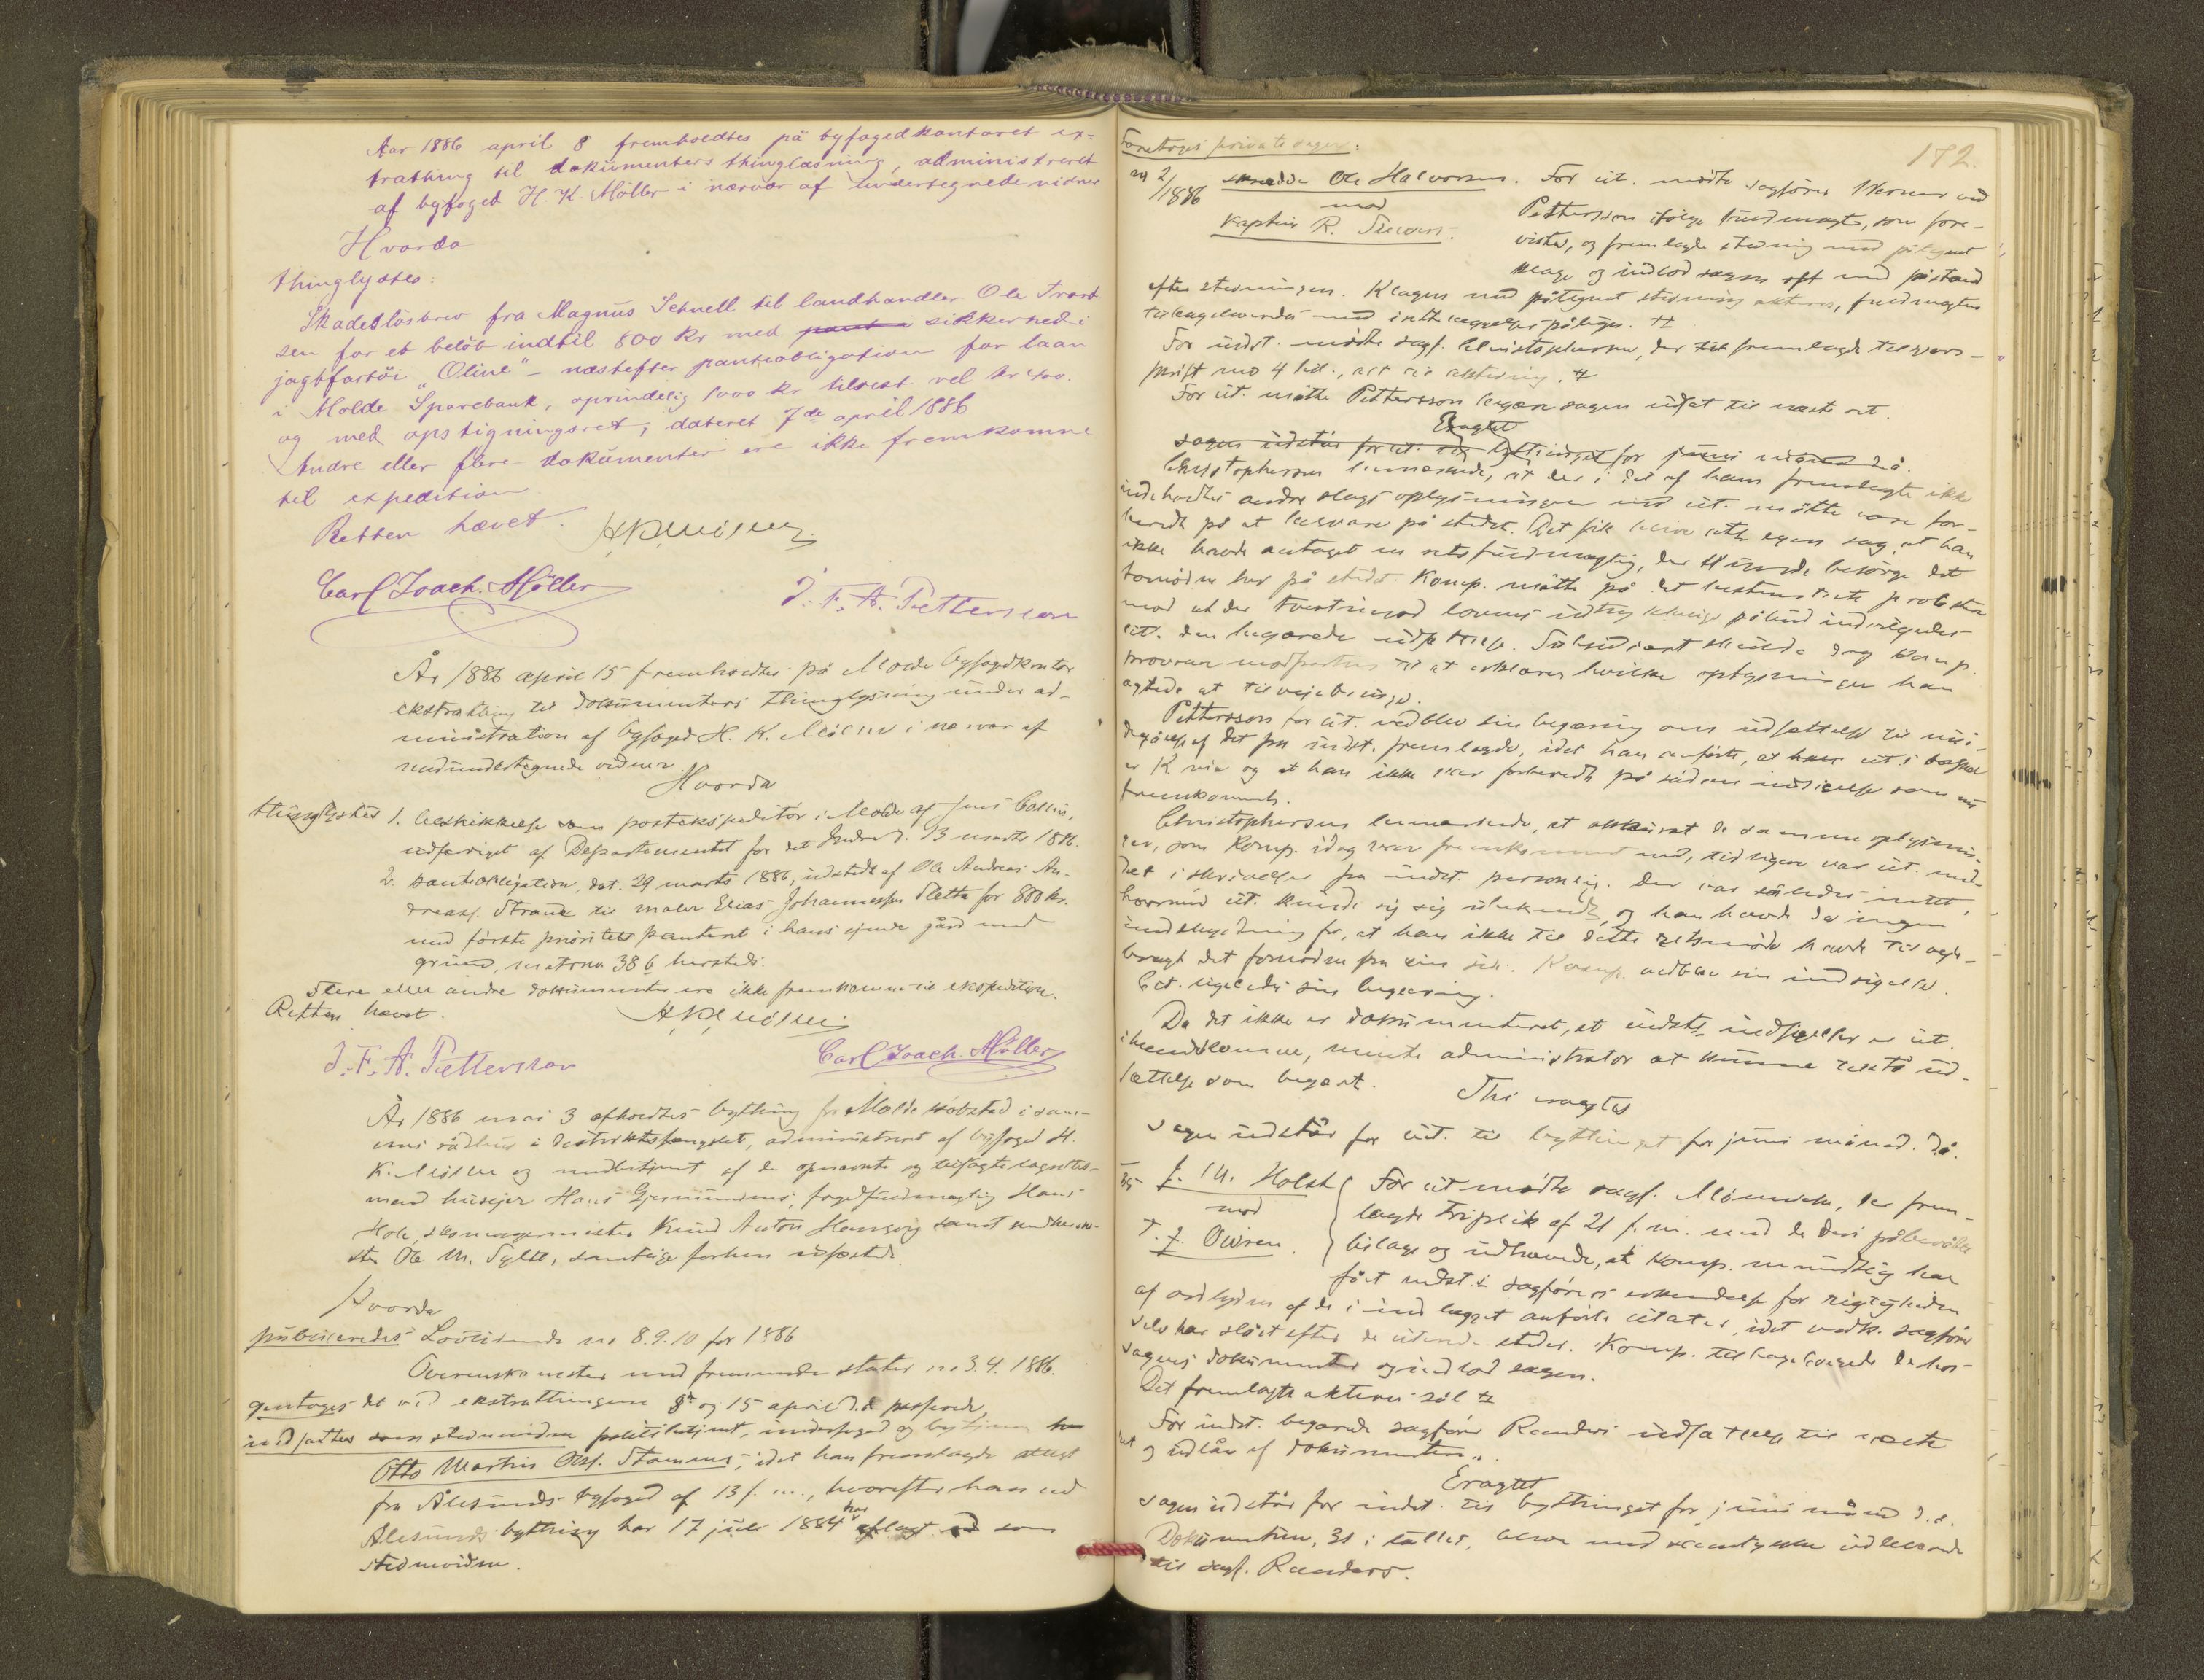 Aar 1886 april 8 fremholdtes på byfogedkontoret ex-
trathing til dokumenters thinglæsning, administreret
af byfoged H. K. Möller i nærvær af undertegnede vidner
Hvorda
thinglystes:
Skadeslösbrev fra Magnus Schnell til landhandler Ole Trond-
sen for et belöb indtil 800 kr med pant i sikkerhed i
jagtfartöi "Oline" - næstefter panteobligation for laan
i Molde Sparebank, oprindelig 1000 kr tilrest vel kr 400.
og med opstigningsret, dateret 7de april 1886
Andre eller flere dokumenter ere ikke fremkomne
til expedition
Retten hævet. HKMöller
Carl Joach. Möller J. F. A. Petterson
År 1886 april 15 fremholdtes på Molde byfogdkontor
ekstrathing til dokumenters thinglysning under ad-
ministration af byfoged H. K. Möller i nærvær af
medundertegnede vidner
Hvorda
thinglystes 1. Beskikkelse som postekspeditör i Molde af Jens Collin,
udfærdiget af Departementet for det Indre d. 13 marts 1886.
2. panteobligation, dat. 29 marts 1886, udstedt af Ole Andreas An-
dreass. Strand til maler Elias Johannessen Sletta for 800 kr.
med förste prioritets panteret i hans eiende gård med
grund, matrno 38 b hersteds.
Flere eller andre dokumenter ere ikke fremkomne til ekspedition.
Retten hævet. HKMöller
J. F. A. Petterson Carl Joach. Möller
År 1886 mai 3 afholdtes bything for Molde kjöbstad i sam-
mes rådhus i distriktsfængslet, administreret af byfoged H.
K. Möller og medbetjent af de opnævnte og tilsagte lagrettes-
mænd huseier Hans Gjermundnes, fogedfuldmægtig Hans
Hole, skomagermester Knud Anton Hamsvig samt
Ole M. Sylte, samtlige forhen edfæstede.
Hvorda
publiceredes Lovtidende no 8.9.10 for 1886
Overenskomster med fremmede stater no 3.4. 1886.
gjentoges det ved ekstrathingene 8de og 15 april d.å. passerede,
indsattes som stevnevidne politibetjent,
Otto Martin Olss. Stamnes, idet han fremlagde attest
fra Ålesunds byfoged af 13 f. m., hvorefter han ved
Alesunds bything har 17 juli 1884 har aflagt ed som
stevnevidne.
182.
Foretoges private sager:
no 2/1886 Ole Halvorsen. For cit. mödte sagförer Werner ved
mod Pettersson ifölge fuldmagt, som fore-
kaptein R. Sievers. vistes, og fremlagde stevning med påtegnet
klage og indlod sagen oft med påstand
efter stevningen. Klagen med påtegnet stevning akteres, fuldmagten
tilbageleverdes med
For indst. mödte sagf. Christophersen, der fremlagde tilsvars-
skrift med 4 bil., alt til aktering.
For cit. mötte Pettersson begjære sagen udsat til næste ret.
Eragtet
sagen udstår for cit. til bythinget for juni måned d.å.
Christophersen bemærkede, at der i det af ham fremlagte ikke
indeholdtes andre slags oplysninger end cit. måtte være for-
beredt på at besvare på stedet. Det fik blive citts egen sag, at han
ikke havde antaget en retsfuldmægtig, der kunde besörge det
fornödne her på stedet. Komp. måtte på det bestemteste protestere
mod at der tvertimod lovens udtrykkelige påbud indrömmedes
cit. den begjærede udsættelse. Subsidiært skulde dog komp.
provocere modparten til at erklære hvilke oplysninger han
agtede at tilveiebringe.
Pettersson for cit. vedblev sin begjæring om udsættelse til imö-
degåelse af det fra indst. fremlagde, idet han anförte, at cit. i
er K og at han ikke var forberedt på sådan indsigelse som nu
fremkommet.
Christophersen bemærkede, at akkurat de samme oplysnin-
ger, som komp. idag var fremkommet med, tidligere var cit. med-
delt i skrivelser fra indst. personlig. Der var således intet,
hvormed cit. kunde sig sig ubekendt, og han havde da ingen
undskyldning for, at han ikke til dette retsmöde havde tilveie-
bragt det fornödne fra sin side. Komp. vedblev sin indsigelse.
Cit. ligeledes sin begjæring.
Da det ikke er dokumenteret, at indsts indsigelser er cit.
ihændekomne, mente administrator at kunne tilstå ud-
sættelse som begjært. Thi eragtes
Sagen udstår for cit. til bythinget for juni måned d.å.
/85 J. M. Holst For cit mödte sagf. Mönnich, der frem-
mod lagde triplik af 21 f. m. med de deri påberåbte
T. J. Owren. bilage og udhævede, at komp. mundtlig har
fået indst.s sagförers erkendelse for rigtigheden
af ordlyden af de i indlægget anförte citater, idet vedk. sagförer
selv har slået efter de citerede steder. Komp. tilbageleverede de hos-
sagens dokumenter og indlod sagen.
Det fremlagte akteres sål
For indst. begjærede sagförer Randers udsættelse til næste
ret og udlån af dokumenterne.
Eragtet
Sagen udstår for indst. til bythinget for juni måned d.å.
Dokumenterne, 31 i tallet, blive med udleverede
til sagf. Randers.